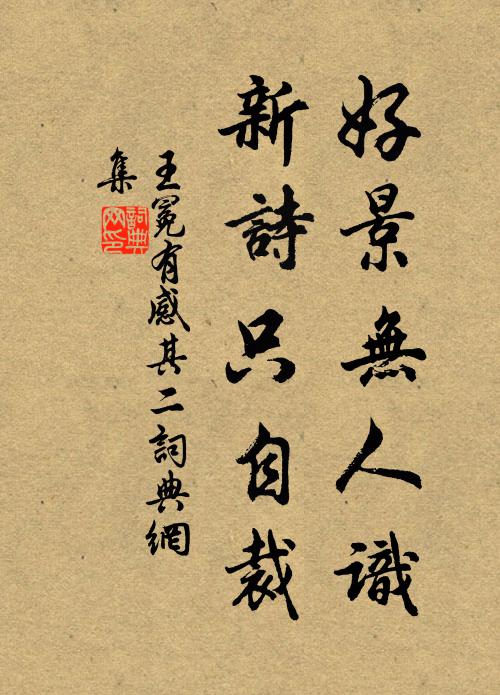 好景無人識
新詩只自裁
王冕有感其二詞典網
集
詞典
网印